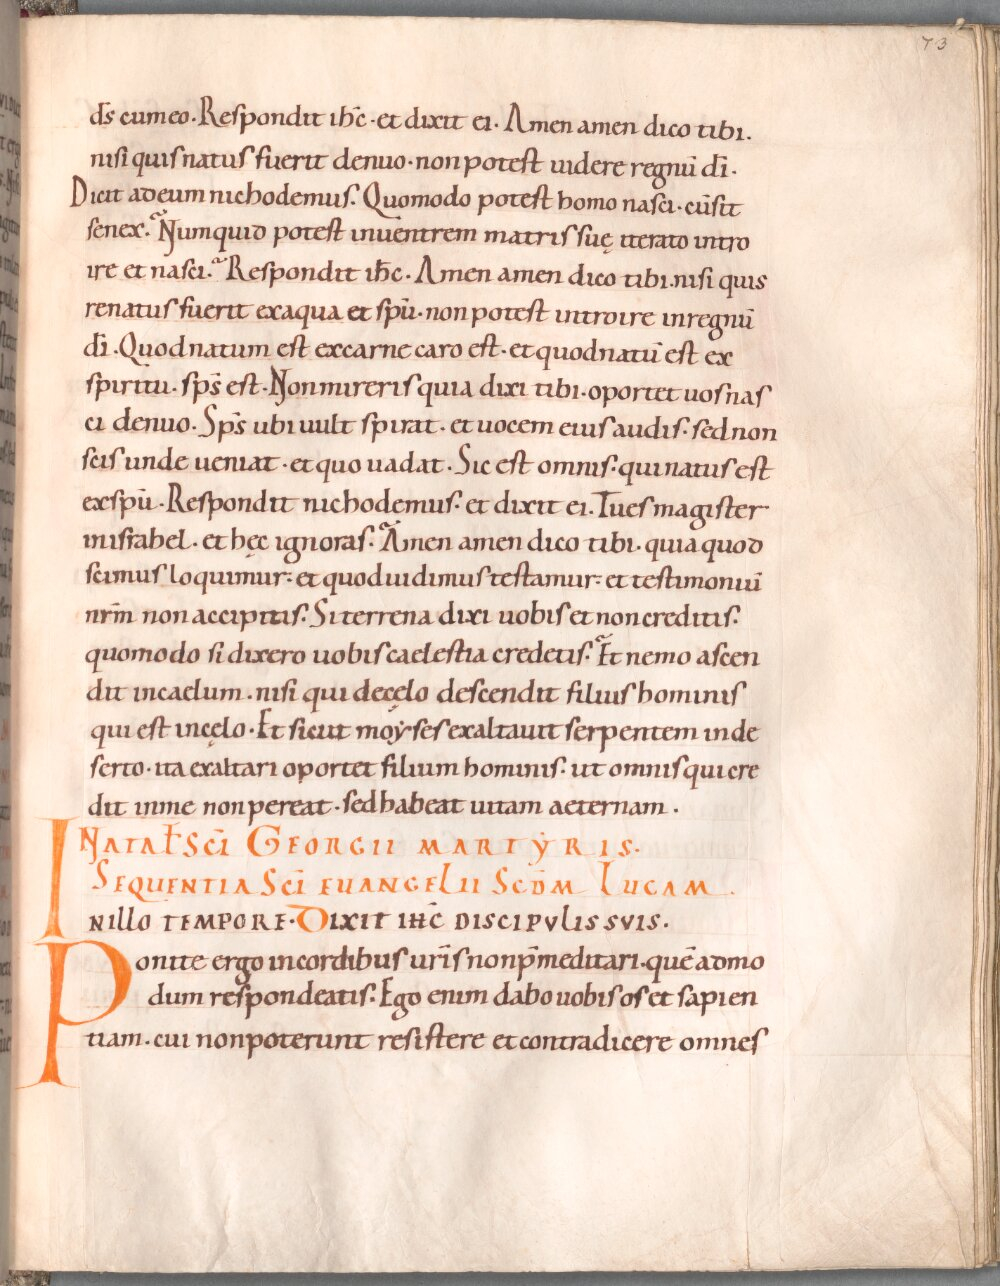 73
d̄s cum eo. Respondit ih̄c. et dixit ei. Amen amen dico tibi.
nisi quis natus fuerit denuo. non potest videre regnū dī.
Dicit ad eum nichodemus. Quomodo potest homo nasci. cū sit
senex. Numquid potest in ventrem matris suę iterato intro
ire et nasci. Respondit ih̄c. Amen amen dico tibi. nisi quis
renatus fuerit ex aqua et spū. non potest introire in regnū
dī. Quod natum est ex carne caro est. et quod natū est ex
spiritu. sp̄s est. Non mireris quia dixi tibi. oportet vos nas
ci denuo. Sp̄s ubi vult spirat. et vocem eius audis. sed non
scis unde veniat. et quo vadat. Sic est omnis. qui natus est
ex spū. Respondit nichodemus. et dixit ei. Tu es magister
in israhel. et hęc ignoras. Amen amen dico tibi. quia quod
scimus loquimur. et quod vidimus testamur. et testimoniū
nr̄m non accipitis. Si terrena dixi vobis et non creditis.
quomodo si dixero vobis caelestia credetis. Et nemo ascen
dit in caelum. nisi qui de cęlo descendit filius hominis
qui est in cęlo. Et sicut moẏses exaltavit serpentem in de
serto. ita exaltari oportet filium hominis. ut omnis qui cre
dit in me non pereat. sed habeat vitam aeternam.
NATAL̄ SC̄I GEORGII MARTẎRIS.
SEQUENTIA SC̄I EUANGELII SCD̄M LUCAM.
IN ILLO TEMPORE. DIXIT IH̄C DISCIPVLIS SVIS.
Ponite ergo in cordibus ur̄is non p̄meditari. quē admo
dum respondeatis. Ego enim dabo vobis os et sapien
tiam. cui non poterunt resistere et contradicere omnes